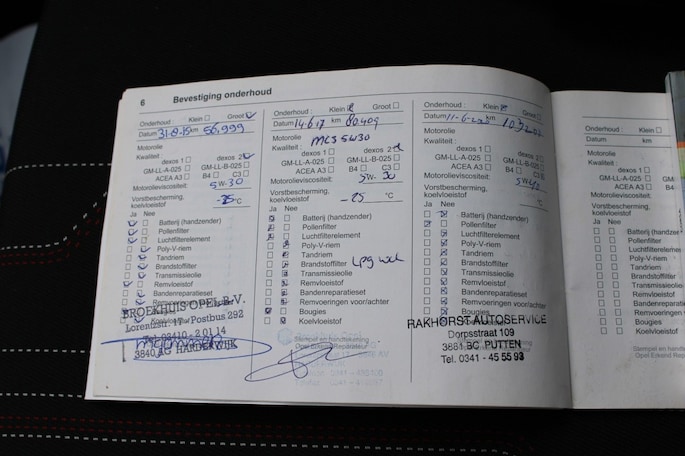 6 Bevestiging onderhoud
Onderhoud : Klein Groot
Datum 31-8-15 km 56,999
Motorolie
Kwaliteit :
dexos 1 dexos 2
GM-LL-A-025 GM-LL-B-025
ACEA A3 B4 C3
Motorolieviscositeit:
5W-30
Vorstbescherming,
koelvloeistof
-25 °C
Ja Nee
Batterij (handzender)
Pollenfilter
Luchtfilterelement
Poly-V-riem
Tandriem
Brandstoffilter
Transmissieolie
Remvloeistof
Bandenreparatieset
BROEKHUIS OPEL B.V.
Lorentzstr. 17 - Postbus 292
3840 AG HARDERWIJK
Onderhoud : Klein Groot
Datum 14-6-17 km 80.409
Motorolie MCS 5W30
Kwaliteit :
dexos 1 dexos 2
GM-LL-A-025 GM-LL-B-025
ACEA A3 B4 C3
Motorolieviscositeit:
5W-30
Vorstbescherming,
koelvloeistof
-25 °C
Ja Nee
Batterij (handzender)
Pollenfilter
Luchtfilterelement
Poly-V-riem
Tandriem
Brandstoffilter Lpg
Transmissieolie
Remvloeistof
Bandenreparatieset
Remvoeringen voor/achter
Bougies
Koelvloeistof
Stempel en handtekening
Onderhoud : Klein Groot
Datum km
Motorolie
Kwaliteit :
dexos 1 dexos 2
GM-LL-A-025 GM-LL-B-025
ACEA A3 B4 C3
Motorolieviscositeit:
Vorstbescherming,
koelvloeistof
°C
Ja Nee
Batterij (handzender)
Pollenfilter
Luchtfilterelement
Poly-V-riem
Tandriem
Brandstoffilter
Transmissieolie
Remvloeistof
Bandenreparatieset
Remvoeringen voor/achter
Bougies
RAKHORST AUTOSERVICE
Dorpsstraat 109
3881 BC PUTTEN
Tel. 0341 - 45 55 93
Onderhoud : Klein
Datum km
Motorolie
Kwaliteit :
dexos 1
GM-LL-A-025 GM-
ACEA A3 B4
Motorolieviscositeit:
Vorstbescherming,
koelvloeistof
Ja Nee
Batterij (handzender
Pollenfilter
Luchtfilterelement
Poly-V-riem
Tandriem
Brandstoffilter
Transmissieolie
Remvloeistof
Bandenreparaties
Remvoeringen vo
Bougies
Koelvloeistof
Stempel en handteken